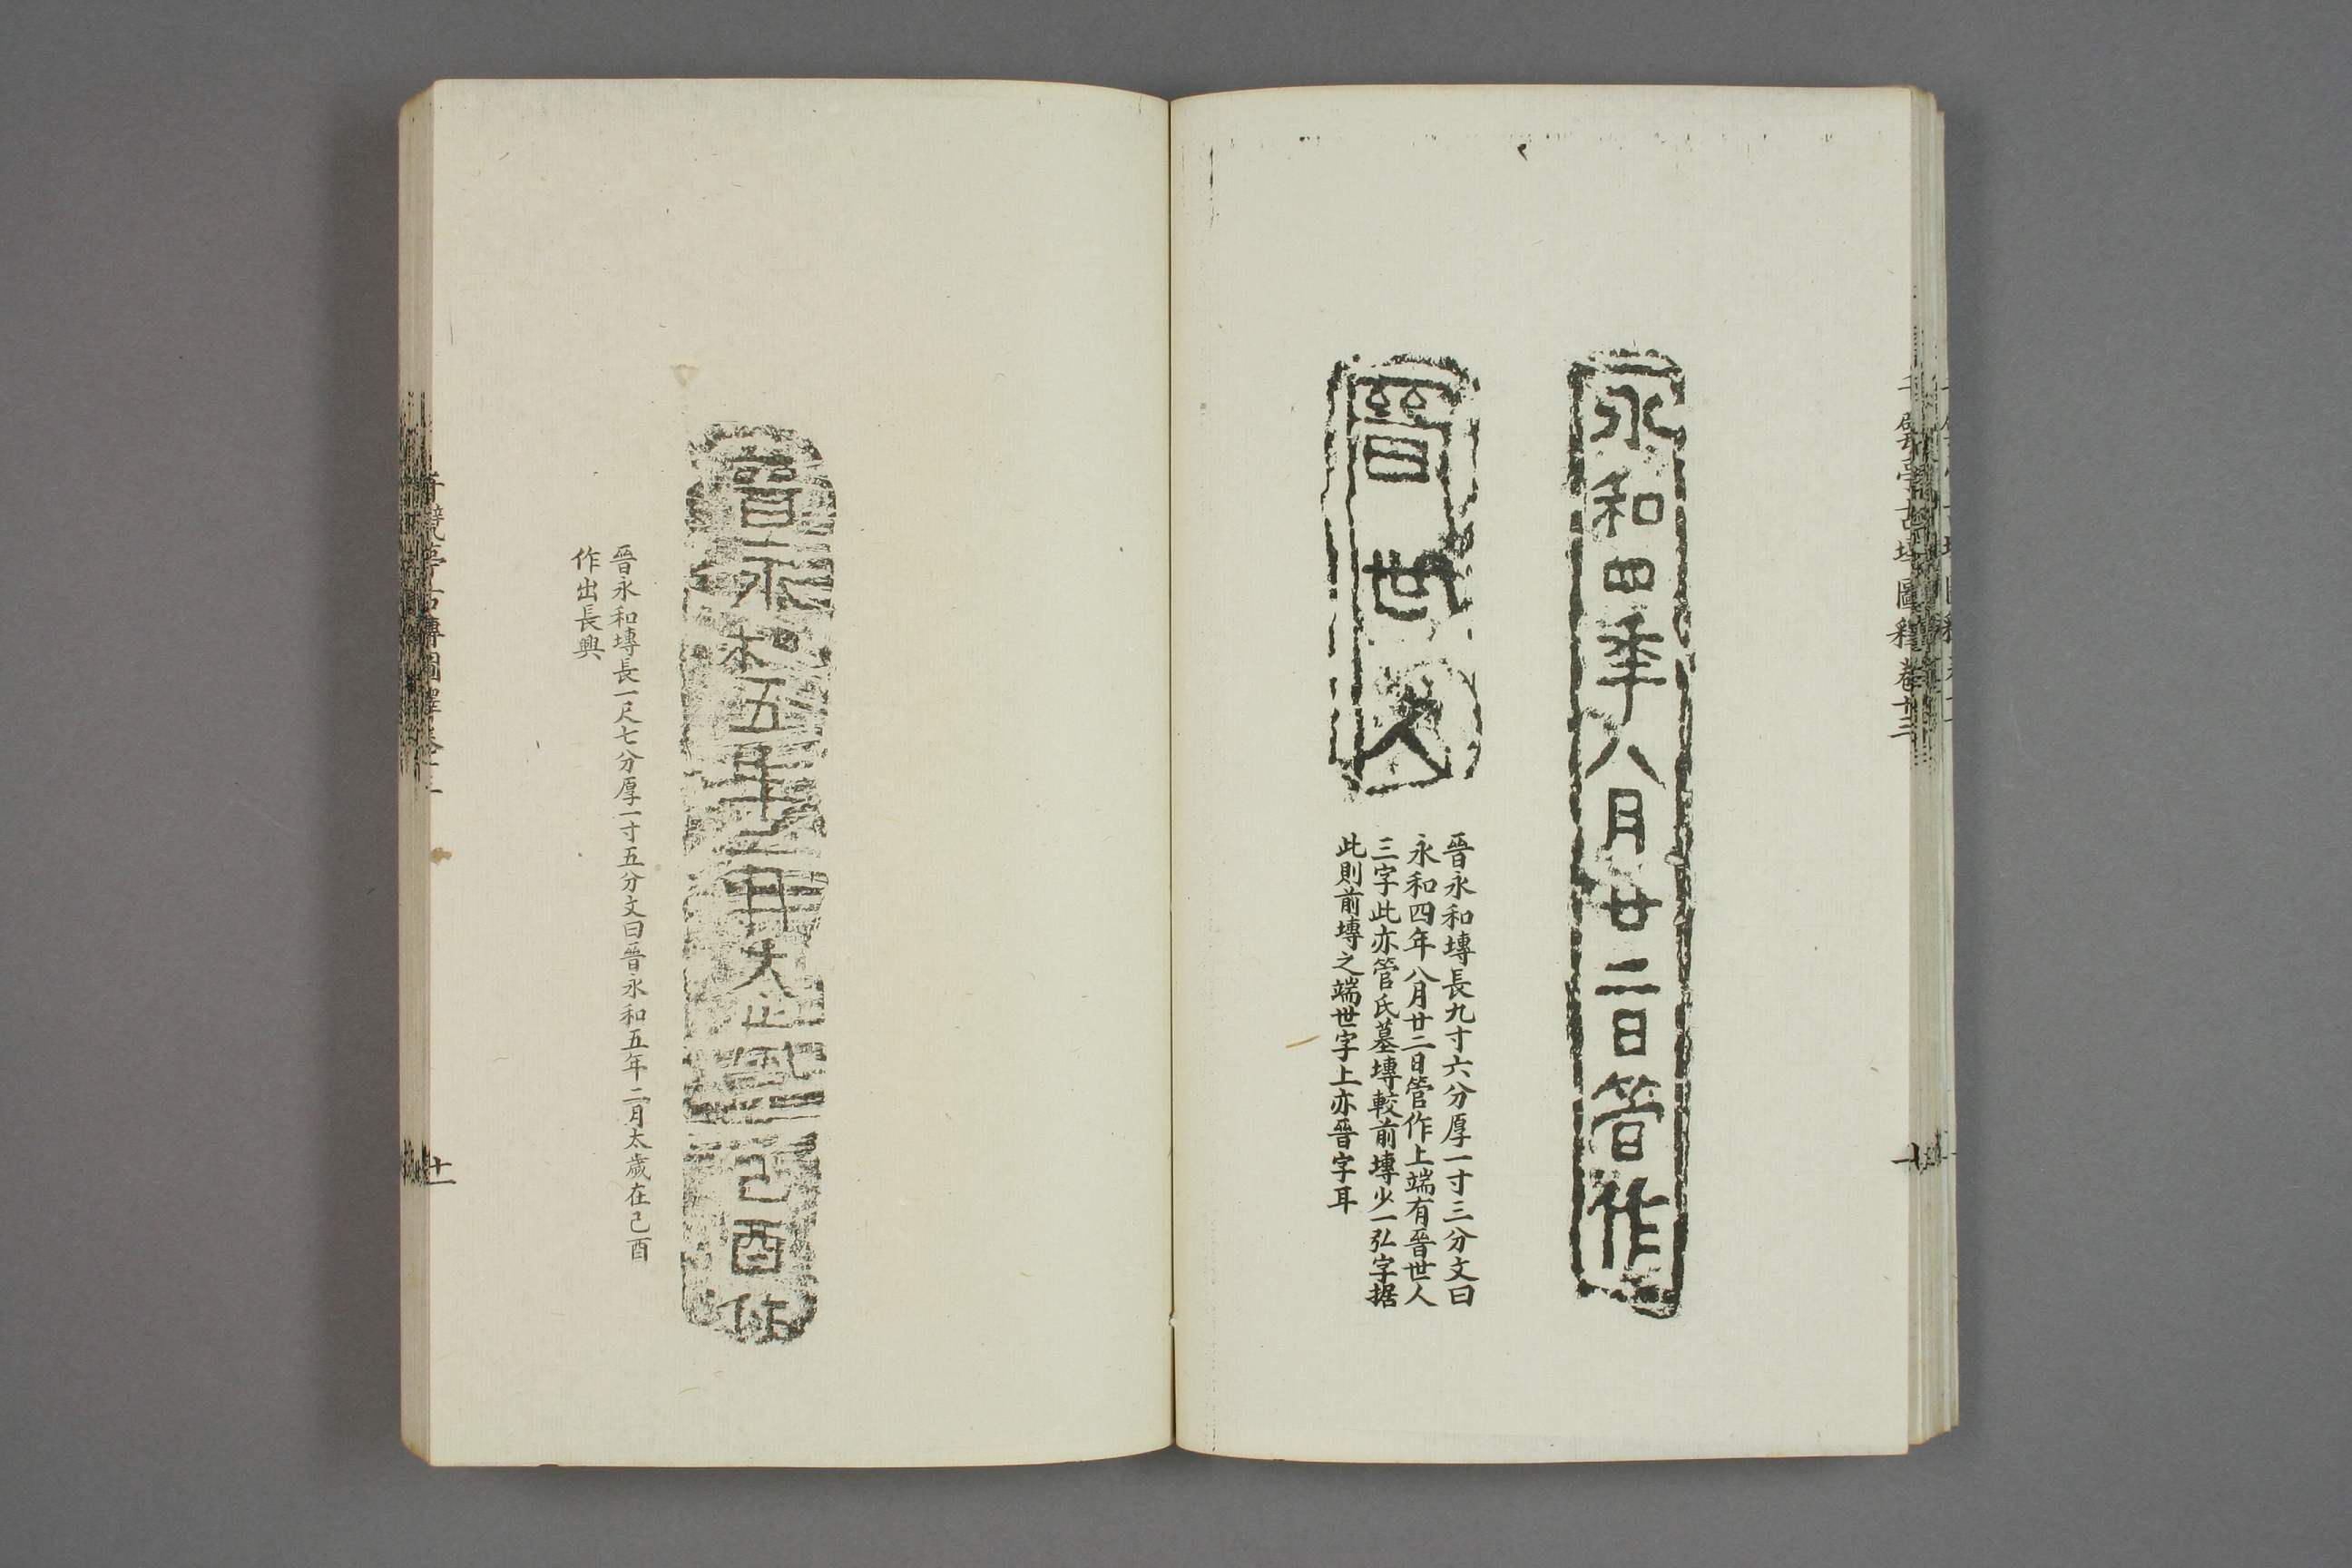 永和四年八月廿二日管作
晉世人
晉永和塼長九寸六分厚一寸三分文曰
永和四年八月廿二日管作上端有晉世人
三字此亦管氏墓塼較前塼少一弘字据
此則前塼之端世字上亦晉字耳
晉永和五年二月太歲在己酉作
晉永和塼長一尺七分厚一寸五分文曰晉永和五年二月太歲在己酉
作出長興
十一